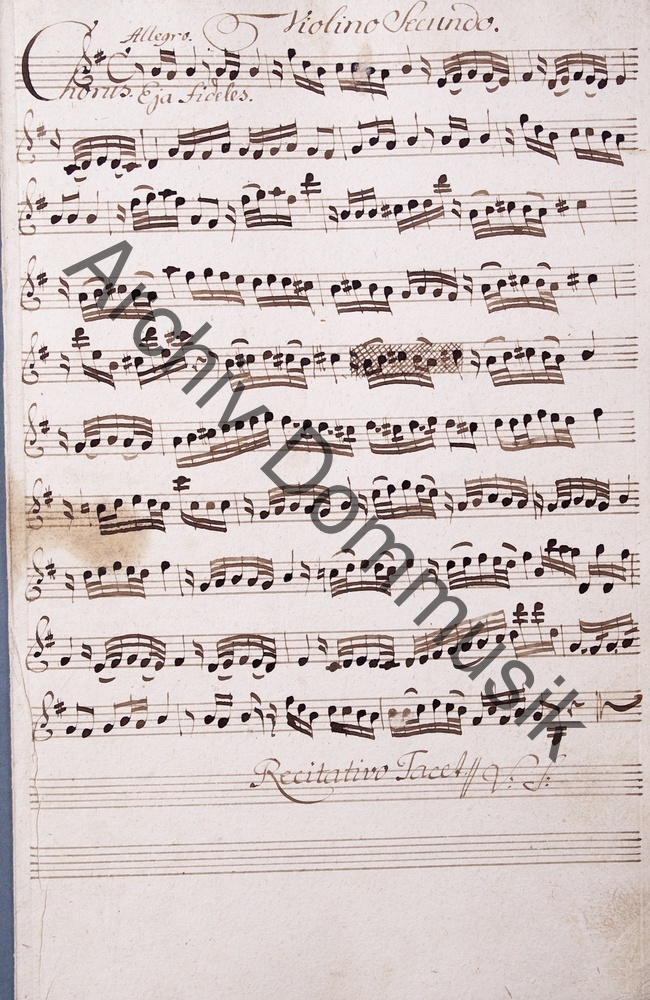 Violino Secundo.
Allegro.
Chorus. Eja fideles.
Archiv Dommusik
Recitativo Tacet // V: S: